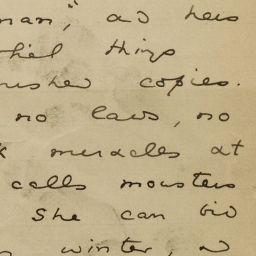 man," and has
things
copies.
no laws, no
miracles at
calls monsters
She can bid
winter, &